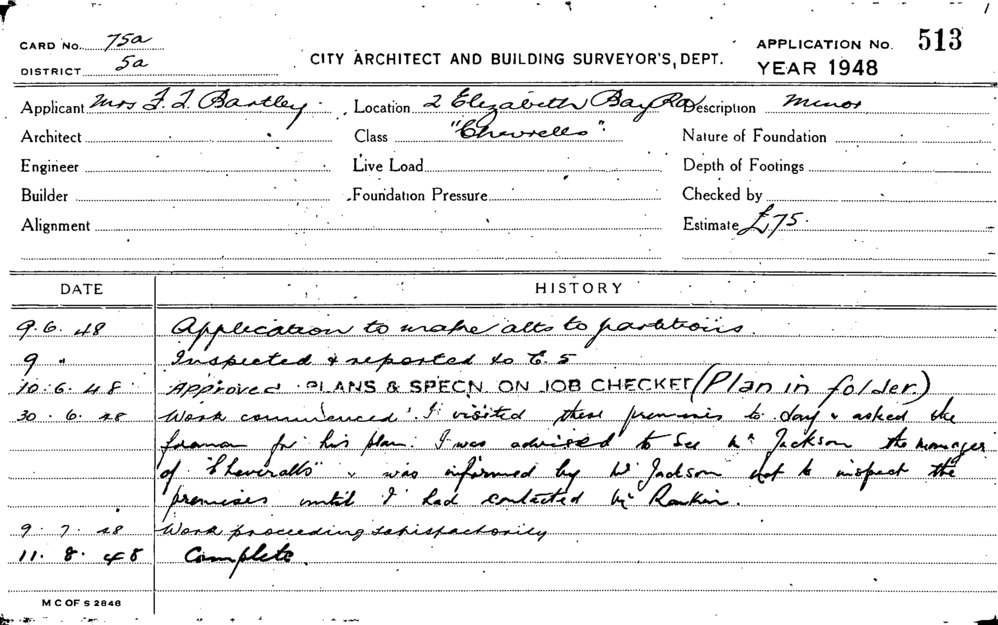 CARD No. 75a
DISTRICT 5a
CITY ARCHITECT AND BUILDING SURVEYOR'S, DEPT.
APPLICATION No. 513
YEAR 1948
Applicant Mrs F. L. Bartley. Location 2 Elizabeth Bay Rd Description Minor
Architect Class "Chevrells". Nature of Foundation
Engineer Live Load Depth of Footings
Builder Foundation Pressure Checked by
Alignment Estimate £75.
DATE HISTORY
9.6.48 Application to make alts to partitions.
9 " Inspected & reported to C.S
10.6.48 Approved PLANS & SPECN. ON JOB CHECKET (Plan in folder)
30.6.48 Work commenced. I visited these premises to day & asked the
foreman for his plan. I was advised to see Mr Jackson the manager
of "Cheveralls" & was informed by Mr Jackson not to inspect the
premises until I had contacted Mr Rankin.
9.7.48 Work proceeding satisfactorily
11.8.48 Complete.
M C OF S 2848